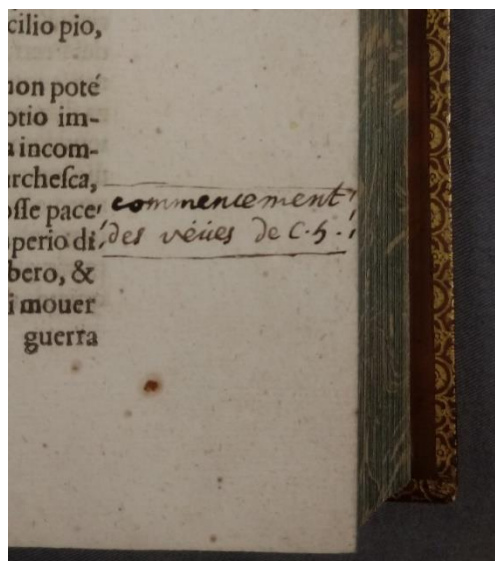 cilio pio,
non poté
otio im-
a incom-
rchesca,
osse pace
perio di
bero, &
i mouer
guerra
commencement
des véües de C. 5.